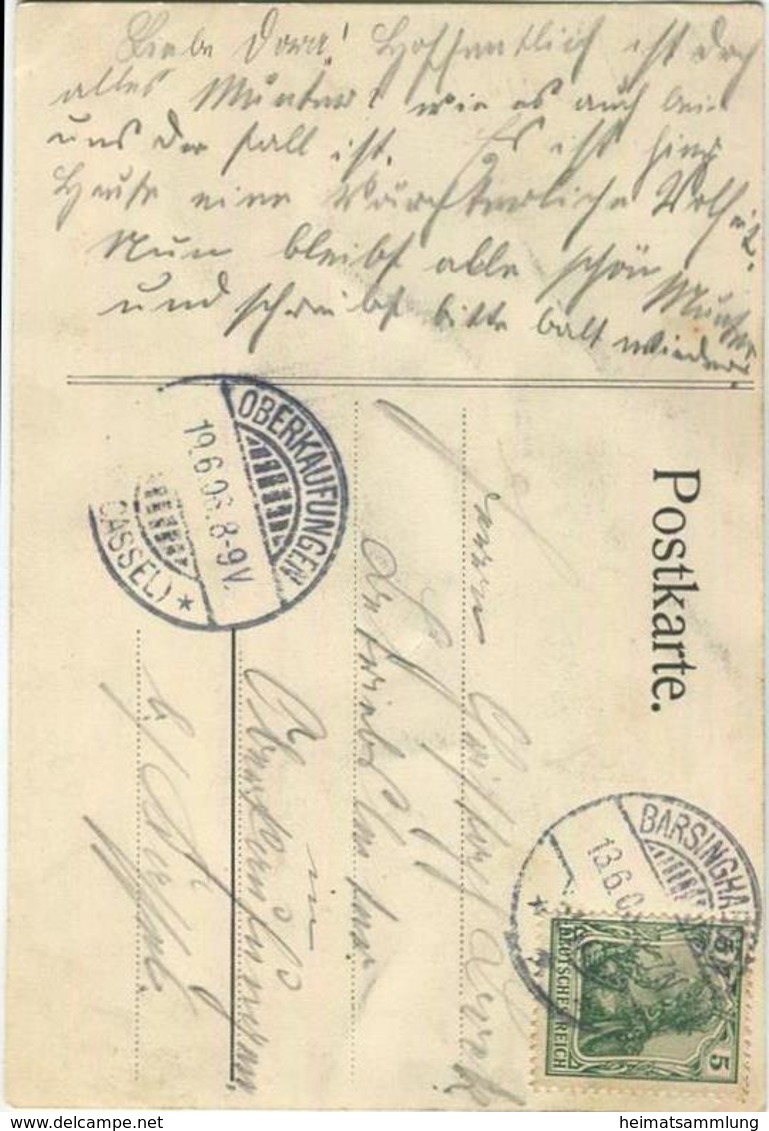 Liebe Dora! Hoffentlich ist doch
alles Munter! wie es auch bei
uns der fall ist. Es ist hier
Heute eine
Nun bleibt alle schön Munter
und schreibt bitte balt wieder.
Postkarte.
Herrn
in
Oberkaufungen
b/ Kassel.
OBERKAUFUNGEN
19.6.06.8-9V.
(CASSEL) *
BARSINGHA
13.6.0
DEUTSCHES REICH
5
5
www.delcampe.net
heimatsammlung